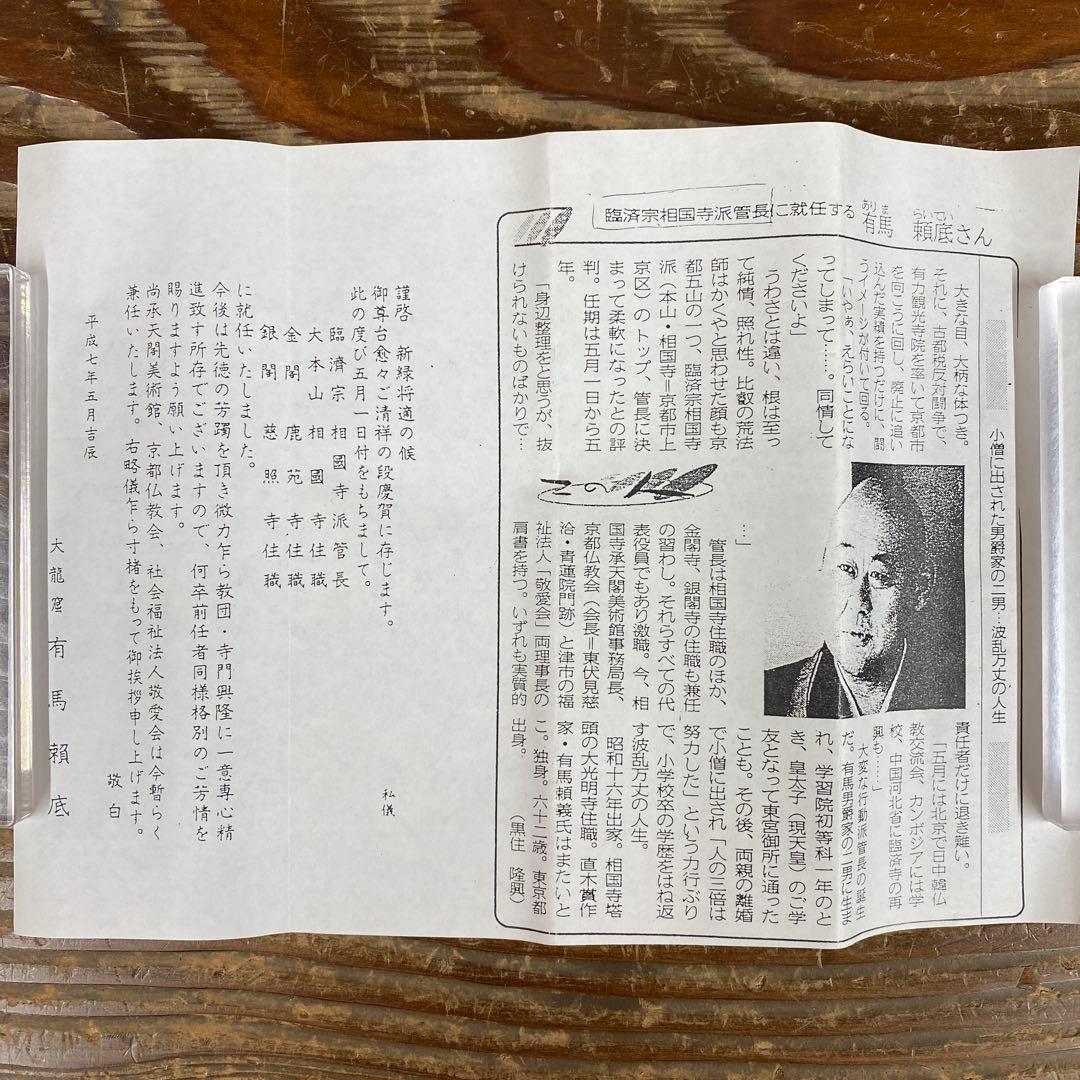 臨済宗相国寺派管長に就任する
ありま らいてい
有馬 頼底さん
小僧に出された男爵家の二男…波乱万丈の人生
大きな目、大柄な体つき。
それに、古都税反対闘争で、
有力観光寺院を率いて京都市
を向こうに回し、廃止に追い
込んだ実績を持つだけに、闘
うイメージが付いて回る。
「いやぁ、えらいことにな
ってしまって……。同情して
くださいよ」
うわさとは違い、根は至っ
て純情、照れ性。比叡の荒法
師はかくやと思わせた顔も京
都五山の一つ、臨済宗相国寺
派（本山・相国寺＝京都市上
京区）のトップ、管長に決
まって柔軟になったとの評
判。任期は五月一日から五
年。
「身辺整理をと思うが、抜
けられないものばかりで…
…」
このひと
管長は相国寺住職のほか、
金閣寺、銀閣寺の住職も兼任
の習わし。それらすべての代
表役員でもあり激職。今、相
国寺承天閣美術館事務局長、
京都仏教会（会長＝東伏見慈
洽・青蓮院門跡）と津市の福
祉法人「敬愛会」両理事長の
肩書を持つ。いずれも実質的
責任者だけに退き難い。
「五月には北京で日中韓仏
教交流会、カンボジアには学
校、中国河北省に臨済寺の再
興も……」
大変な行動派管長の誕生
だ。有馬男爵家の二男に生ま
れ、学習院初等科一年のと
き、皇太子（現天皇）のご学
友となって東宮御所に通った
ことも。その後、両親の離婚
で小僧に出され「人の三倍は
努力した」という力行ぶり
で、小学校卒の学歴をはね返
す波乱万丈の人生。
昭和十六年出家。相国寺塔
頭の大光明寺住職。直木賞作
家・有馬頼義氏はまたいと
こ。独身。六十二歳。東京都
出身。
（黒住 隆興）
謹啓 新緑将適の候
御尊台愈々ご清祥の段慶賀に存じます。
私儀
此の度び五月一日付をもちまして。
臨濟宗相國寺派管長
大本山相國寺住職
金閣鹿苑寺住職
銀閣慈照寺住職
に就任いたしました。
今後は先徳の芳躅を頂き微力乍ら教団・寺門興隆に一意専心精
進致す所存でございますので、何卒前任者同様格別のご芳情を
賜りますよう願い上げます。
尚承天閣美術館、京都仏教会、社会福祉法人敬愛会は今暫らく
兼任いたします。右略儀乍ら寸楮をもって御挨拶申し上げます。
敬白
平成七年五月吉辰
大龍窟 有馬頼底